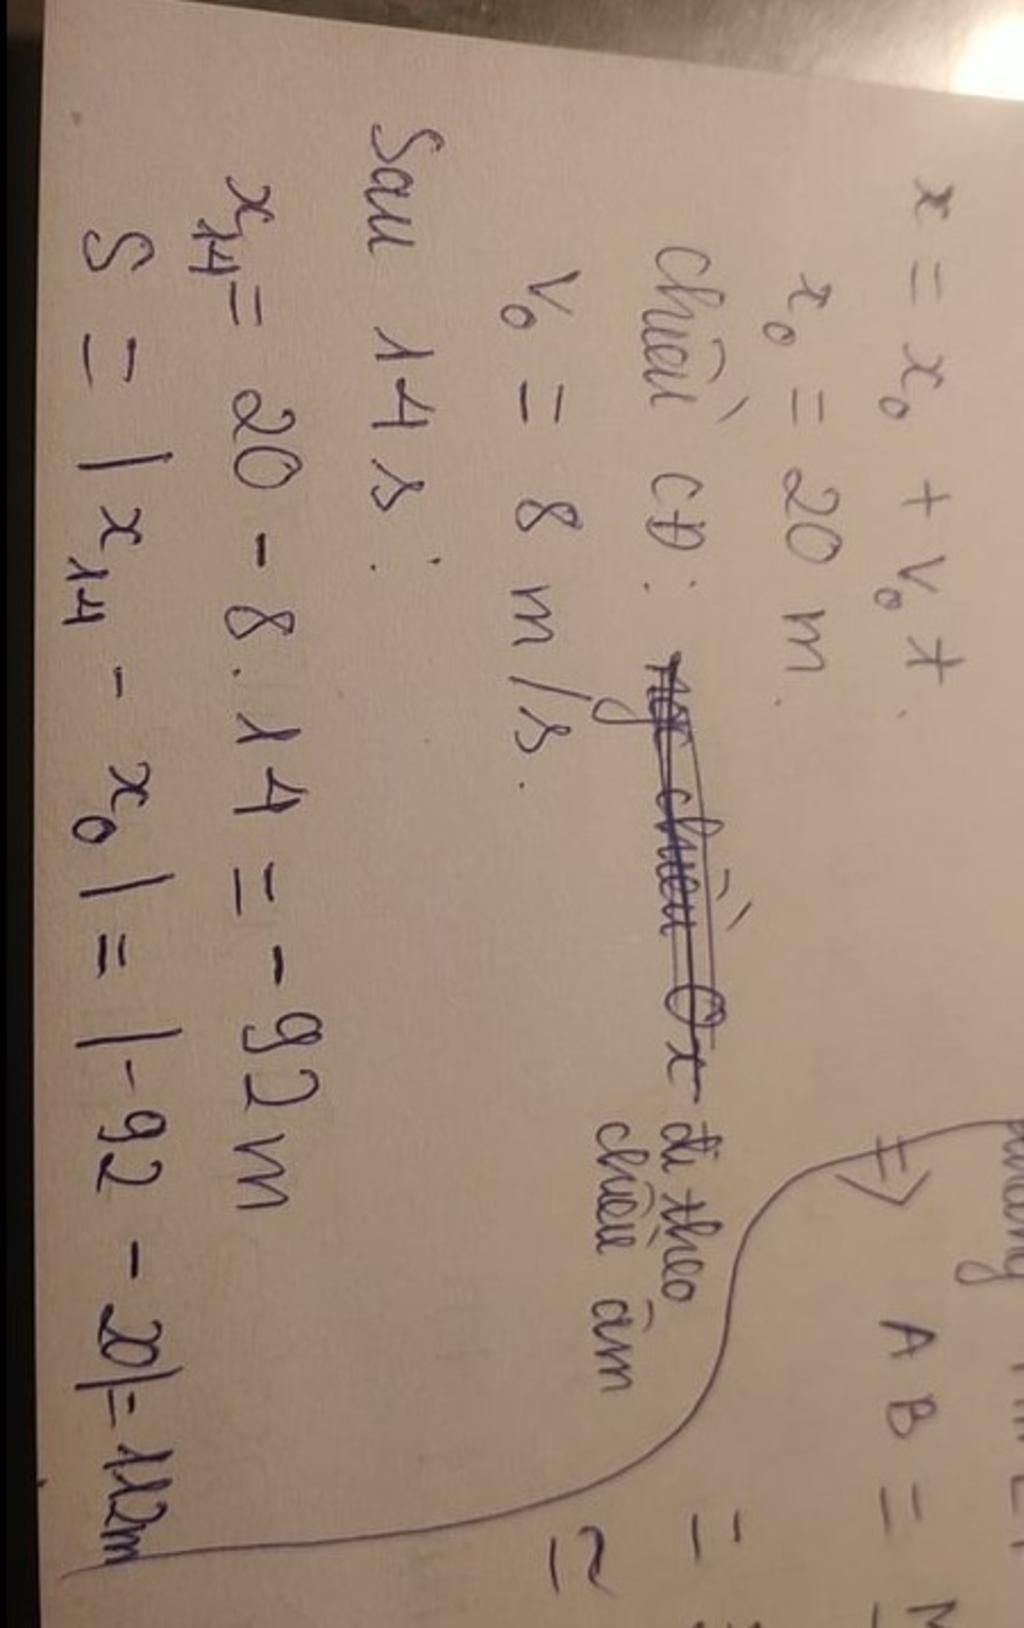 x = x₀ + v₀t.
x₀ = 20 m.
chiều CĐ: đi theo
chiều âm
v₀ = 8 m/s.
Sau 14 s:
x₁₄ = 20 - 8.14 = -92 m
S = |x₁₄ - x₀| = |-92 - 20| = 112m
=> AB =
=
≃